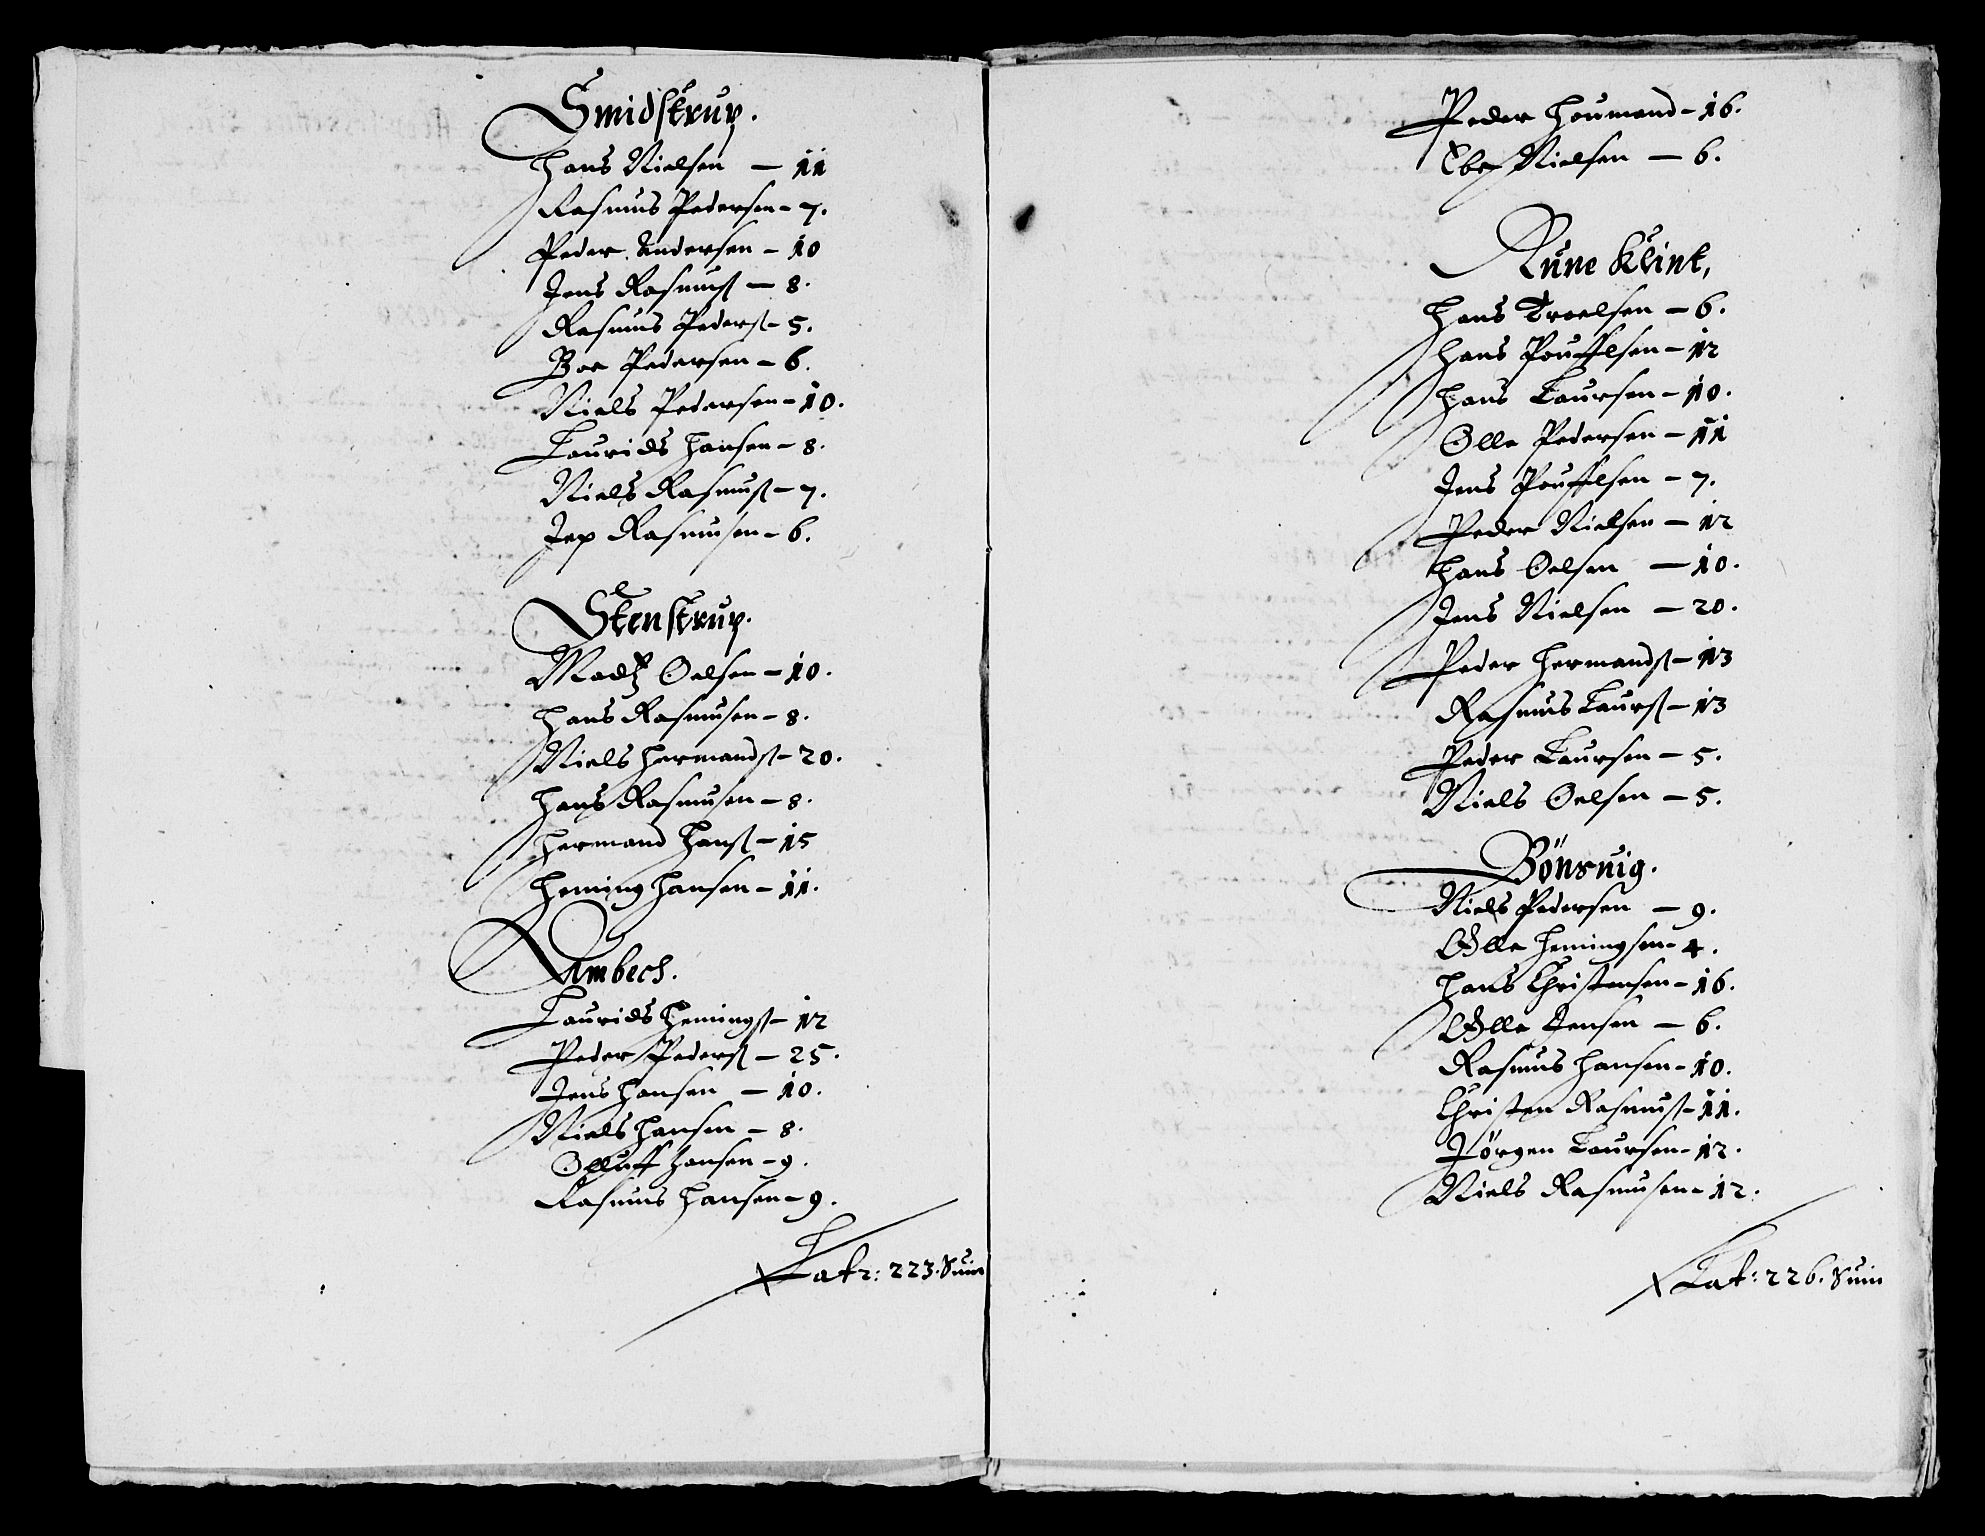 Smidstrup.
Hans Nielsen – 11
Rasmus Pedersen – 7.
Peder Andersen – 10
Jens Rasmuß – 8.
Rasmus Pederß – 5.
Boe Pedersen – 6.
Niels Pedersen – 10.
Laurids Hansen – 8.
Niels Rasmuß – 7.
Jep Rasmusen – 6.
Stenstrup.
Madz Oelsen – 10.
Hans Rasmusen – 8.
Niels Hermandß – 20.
Hans Rasmusen – 8.
Hermand Hanß – 15
Heming Hansen – 11.
Ambech.
Laurids Hemingß – 12
Peder Pederß – 25.
Jens Hansen – 10.
Niels Hansen – 8.
Olluff Hansen – 9.
Rasmus Hansen – 9.
Latr: 223. Suin
Peder Houmand – 16.
Ebe Nielsen – 6.
Rune Klint,
Hans Troelsen – 6.
Hans Pouffelsen – 12
Hans Laursen – 10.
Olle Pedersen – 11
Jens Pouffelsen – 7.
Peder Nielsen – 12
Hans Oelsen – 10.
Jens Nielsen – 20.
Peder Hermandß – 13
Rasmus Laurß – 13
Peder Laursen – 5.
Niels Oelsen – 5.
Bönsuig.
Niels Pedersen – 9.
Olle Hemingsen – 4.
Hans Christensen – 16.
Olle Jensen – 6.
Rasmus Hansen – 10.
Christen Rasmuß – 11.
Jörgen Laursen – 12.
Niels Rasmusen – 12.
Lat: 226. Suin